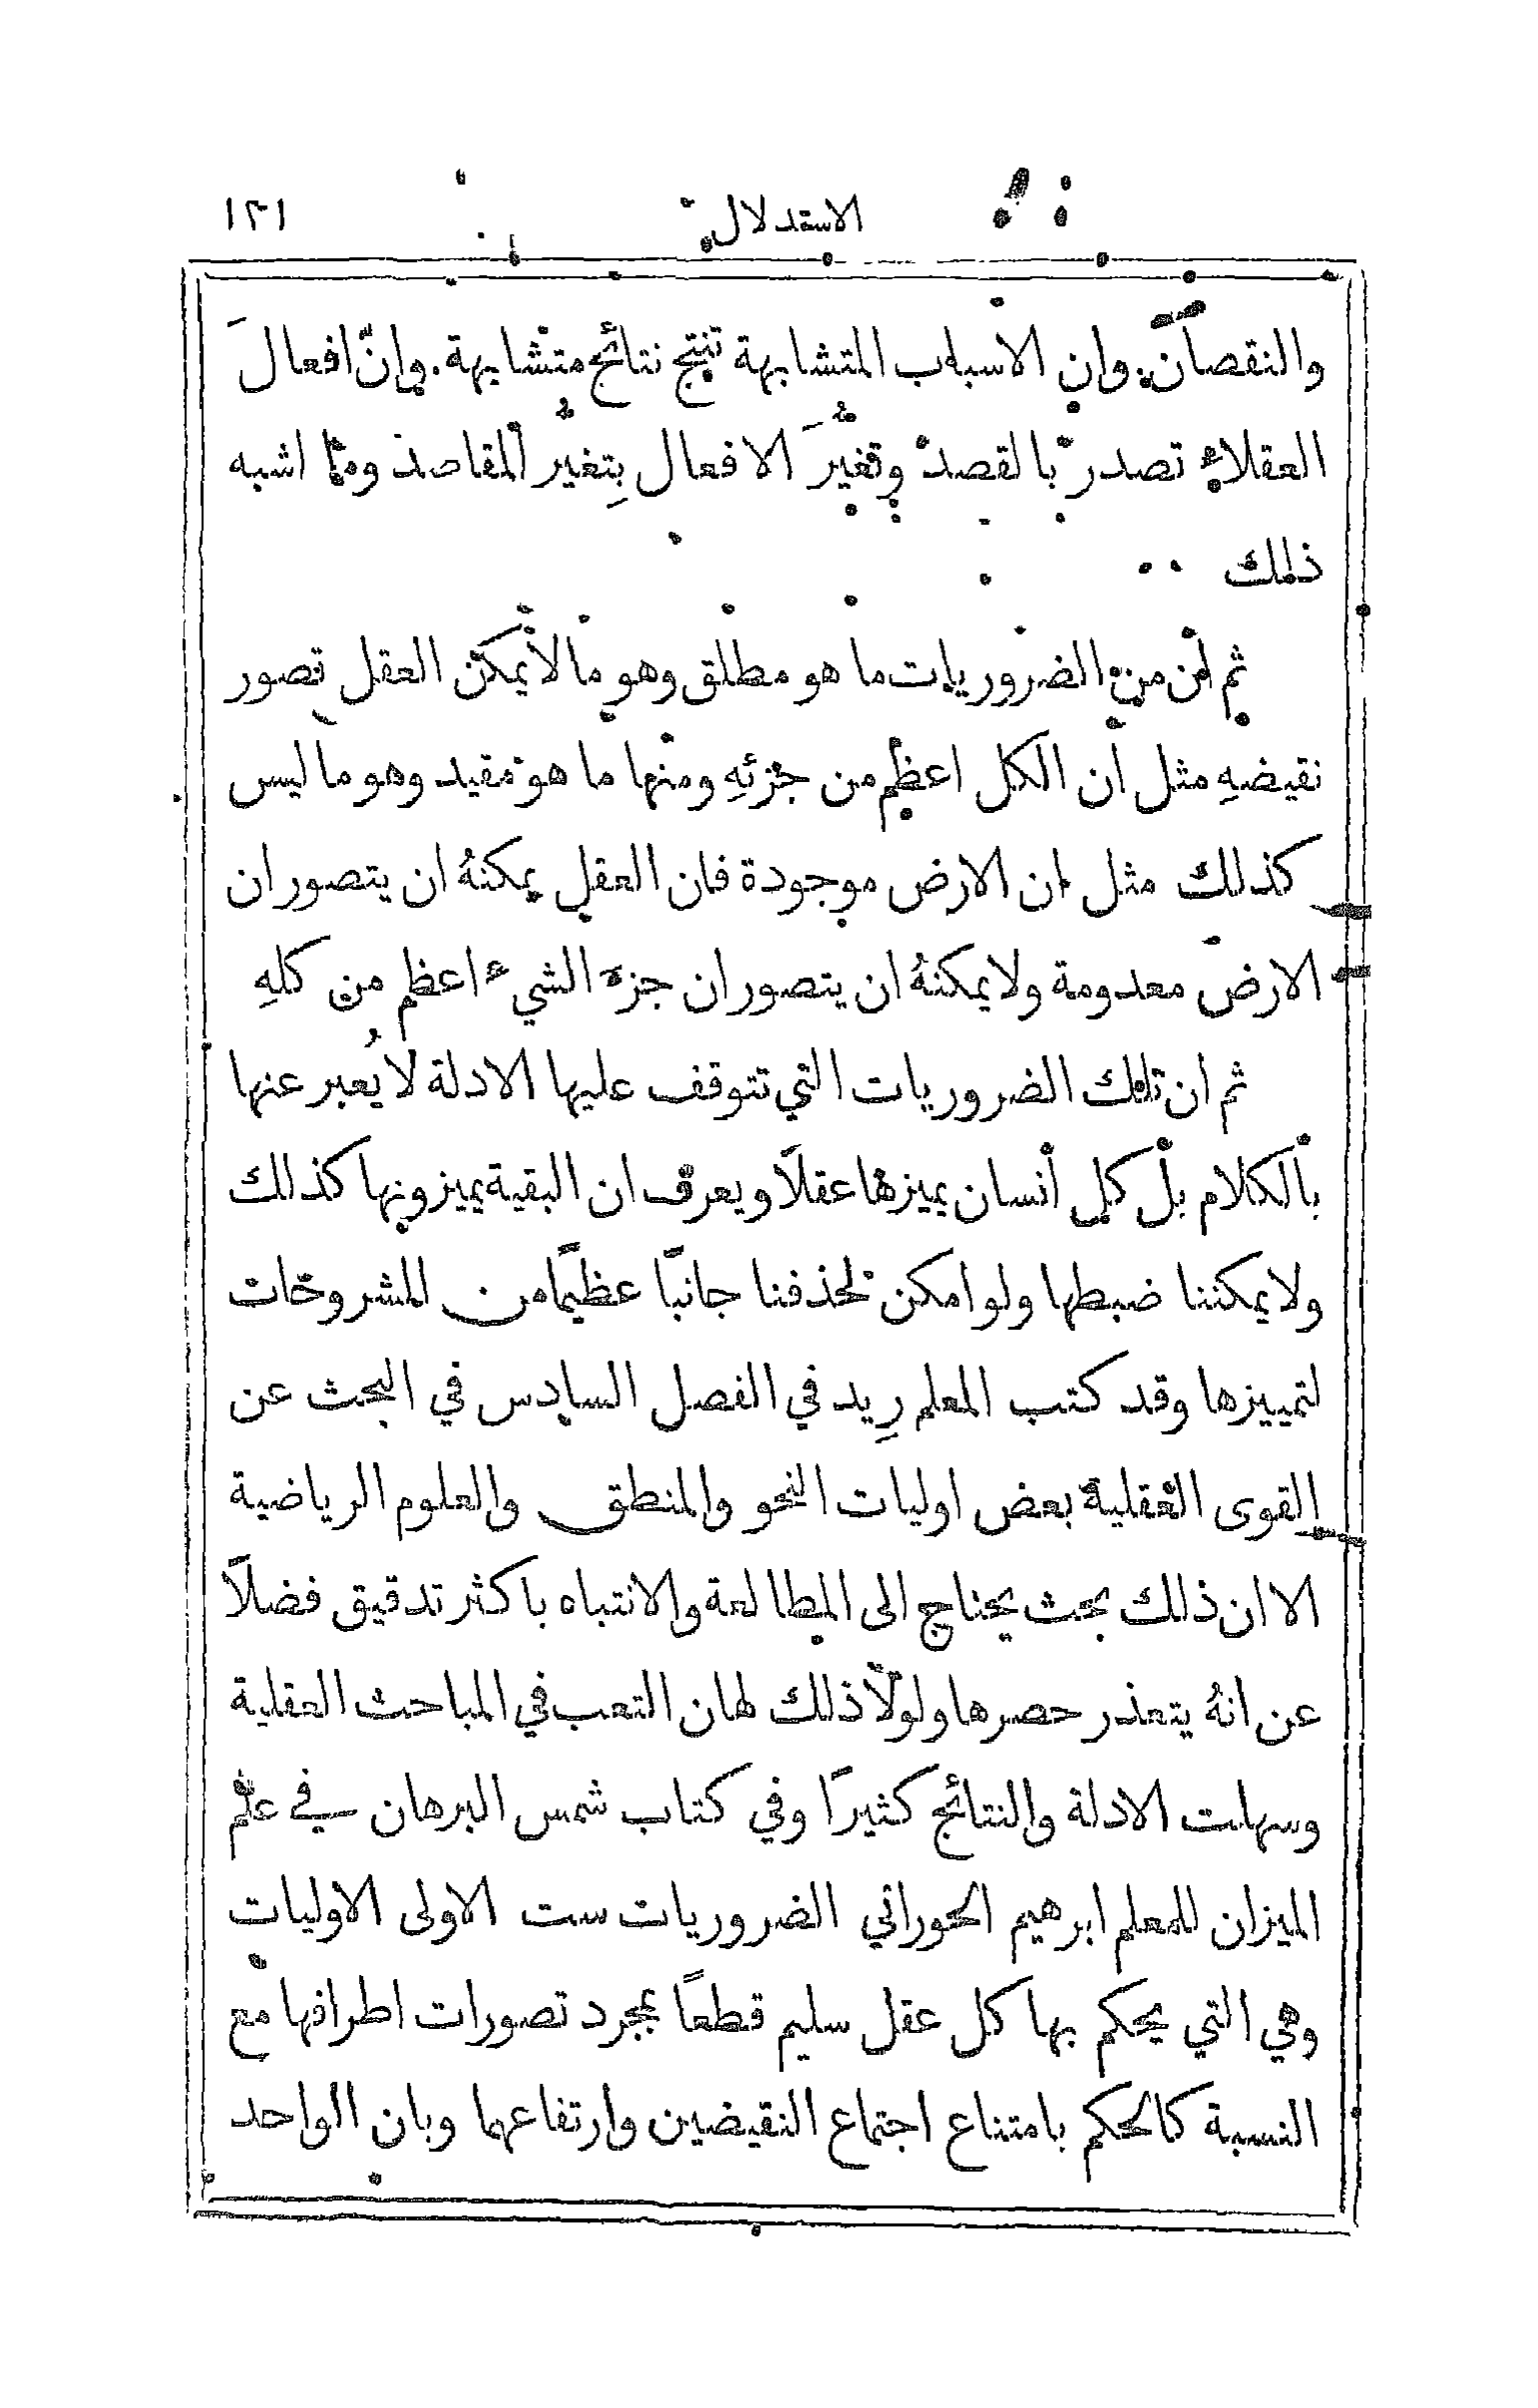 الاستدلال ١٢١
والنقصان. وان الاسباب المتشابهة تنتج نتائج متشابهة. وانّ افعالَ
العقلاء تصدر بالقصد وتغيُّرَ الافعال بِتغيُّر المقاصد وما اشبه
ذلك
ثم ان من الضروريات ما هو مطلق وهو ما لا يمكن العقل تصور
نقيضهِ مثل ان الكل اعظم من جزئهِ ومنها ما هو مقيد وهو ما ليس
كذلك مثل ان الارض موجودة فان العقل يمكنهُ ان يتصور ان
الارض معدومة ولا يمكنهُ ان يتصور ان جزء الشيء اعظم من كلهِ
ثم ان تلك الضروريات التي تتوقف عليها الادلة لا يُعبر عنها
بالكلام بل كل انسان يميزها عقلاً ويعرف ان البقية يميزونها كذلك
ولا يمكننا ضبطها ولو امكن لحذفنا جانبًا عظيمًا من المشروحات
لتمييزها وقد كتب المعلم رِيد في الفصل السادس في البحث عن
القوى العقلية بعض اوليات النحو والمنطق والعلوم الرياضية
الا ان ذلك بحث يحتاج الى المطالعة والانتباه باكثر تدقيق فضلاً
عن انهُ يتعذر حصرها ولولا ذلك لهان التعب في المباحث العقلية
وسهلت الادلة والنتائج كثيرًا وفي كتاب شمس البرهان في علم
الميزان للمعلم ابرهيم الحوراني الضروريات ست الاولى الاوليات
وهي التي يحكم بها كل عقل سليم قطعًا بمجرد تصورات اطرافها مع
النسبة كالحكم بامتناع اجتماع النقيضين وارتفاعهما وبان الواحد